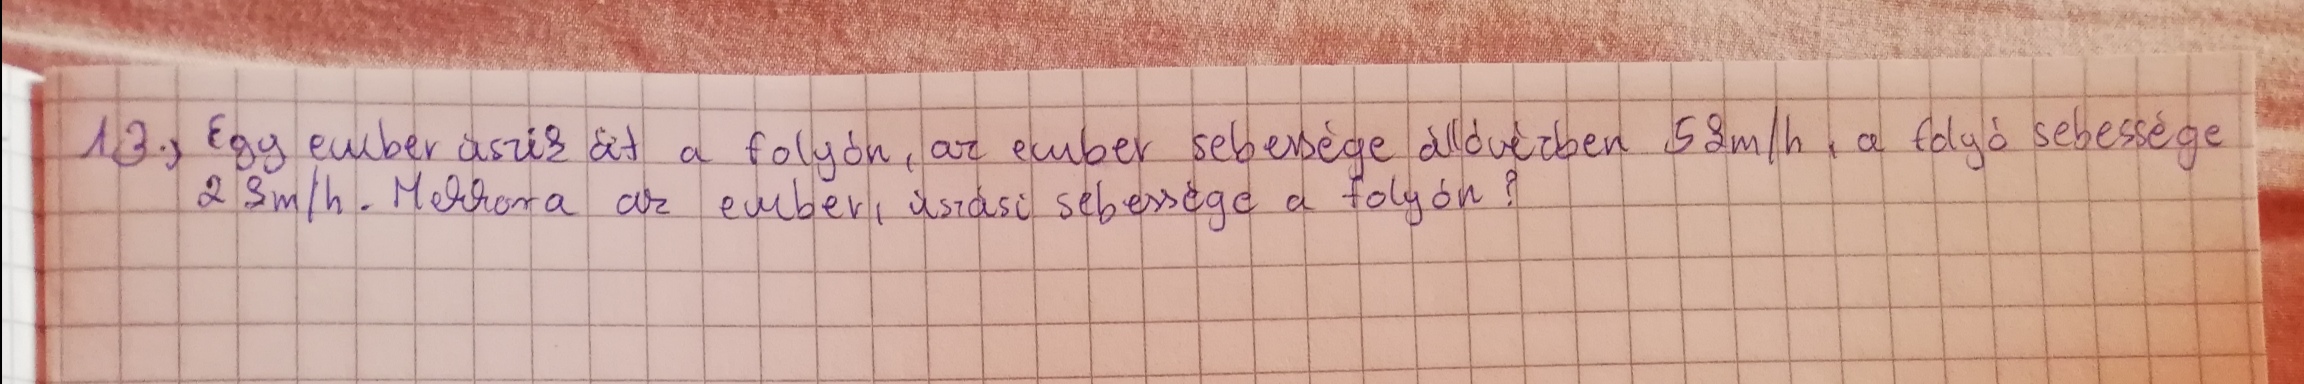 13., Egy ember úszik át a folyón, az ember sebessége állóvízben 5 km/h, a folyó sebessége
2 km/h. Mekkora az ember, úszási sebessége a folyón?